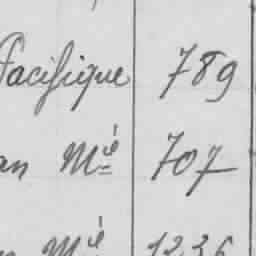 Pacifique 789
an Mié 707
Mié 1236